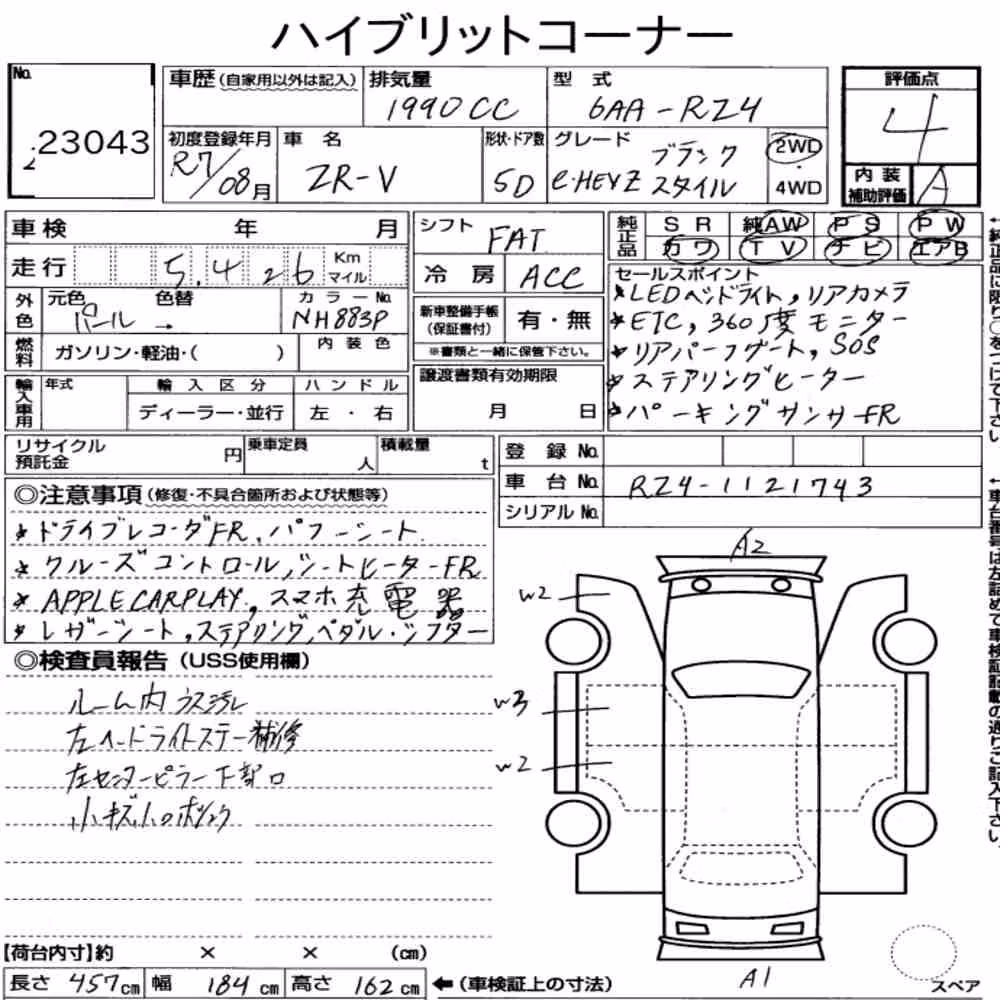 ハイブリットコーナー
No. 23043
車歴(自家用以外は記入) 排気量 1990CC 型式 6AA-RZ4 評価点 4
初度登録年月 R7/08月 車名 ZR-V 形状・ドア数 5D グレード e:HEV Z ブラック スタイル 2WD 4WD
内装補助評価 A
車検 年 月 シフト FAT 純正品 SR 純AW PS PW
カワ TV ナビ エアB
走行 5,426 Km マイル 冷房 ACC
外色 元色 パール 色替 → カラーNo. NH883P
新車整備手帳(保証書付) 有・無
※書類と一緒に保管下さい。
燃料 ガソリン・軽油・( ) 内装色
輸入車用 年式 輸入区分 ディーラー・並行 ハンドル 左・右
譲渡書類有効期限 月 日
セールスポイント
★LEDヘッドライト,リアカメラ
★ETC,360度モニター
★リアパーフゲート,SOS
★ステアリングヒーター
★パーキングサンサFR
リサイクル預託金 円 乗車定員 人 積載量 t
登録No.
車台No. RZ4-1121743
シリアルNo.
◎注意事項(修復・不具合箇所および状態等)
★ドライブレコーダFR,パワーシート
★クルーズコントロール,シートヒーターFR
★APPLE CARPLAY,スマホ充電器
★レザーシート,ステアリング,ペダル・シフター
◎検査員報告(USS使用欄)
ルーム内 ウス汚レ
左ヘッドライトステー補修
左センターピラー下部
小キズ小
A2
W2
W3
W2
A1
スペア
【荷台内寸】約 × × (cm)
長さ 457cm 幅 184cm 高さ 162cm ←(車検証上の寸法)
←純正品に限り○をつけて下さい。
←車台番号は左詰めで車検証記載の通りご記入下さい。